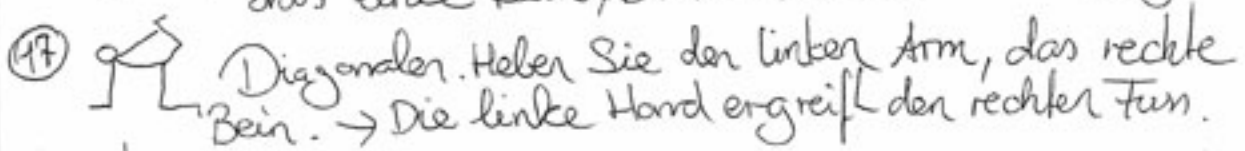 17 Diagonalen. Heben Sie den linken Arm, das rechte
Bein. → Die linke Hand ergreift den rechten Fuss.